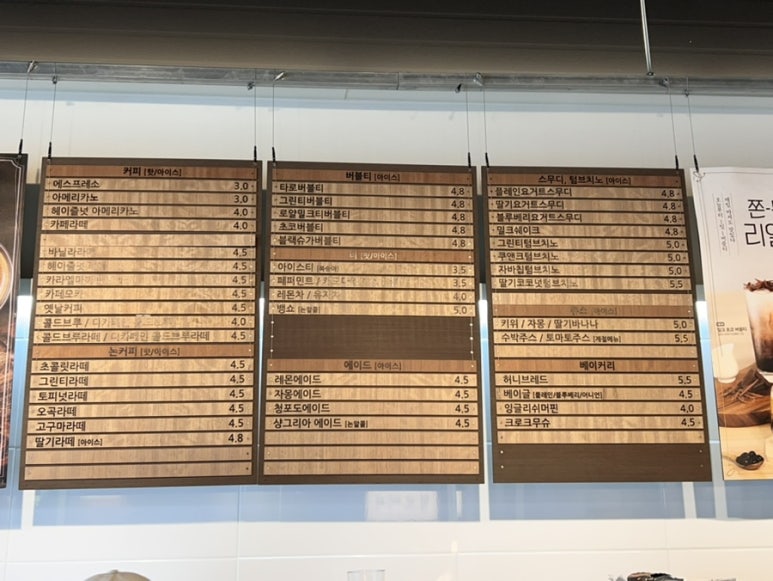 커피 [핫/아이스]
에스프레소 3,0
아메리카노 3,0
헤이즐넛 아메리카노 4,0
카페라떼 4,0
바닐라라떼 4,5
헤이즐넛 4,5
카라멜마 4,5
카페모카 4,5
옛날커피 4,5
콜드브루 / 디카페 콜드브루 4,0
콜드브루라떼 / 디카페인 콜드브루라떼 4,5
논커피 [핫/아이스]
초콜릿라떼 4,5
그린티라떼 4,5
토피넛라떼 4,5
오곡라떼 4,5
고구마라떼 4,5
딸기라떼 [아이스] 4.8
버블티 [아이스]
타로버블티 4,8
그린티버블티 4,8
로얄밀크티버블티 4,8
초코버블티 4,8
블랙슈가버블티 4,8
티 [핫/아이스]
아이스티 [복숭아] 3,5
페퍼민트 / 3,5
레몬차 / 유자차 4,0
뱅쇼 [논알콜] 5,0
에이드 [아이스]
레몬에이드 4,5
자몽에이드 4,5
청포도에이드 4,5
샹그리아 에이드 [논알콜] 4,5
스무디, 텀브치노 [아이스]
플레인요거트스무디 4,8
딸기요거트스무디 4,8
블루베리요거트스무디 4,8
밀크쉐이크 4,8
그린티텀브치노 5,0
쿠앤크텀브치노 5,0
자바칩텀브치노 5,0
딸기코코넛텀브치노 5,5
주스 [아이스]
키위 / 자몽 / 딸기바나나 5,0
수박주스 / 토마토주스 [계절메뉴] 5,5
베이커리
허니브레드 5,5
베이글 [플레인/블루베리/어니언] 4,5
잉글리쉬머핀 4,0
크로크무슈 4,5
쫀
리얼